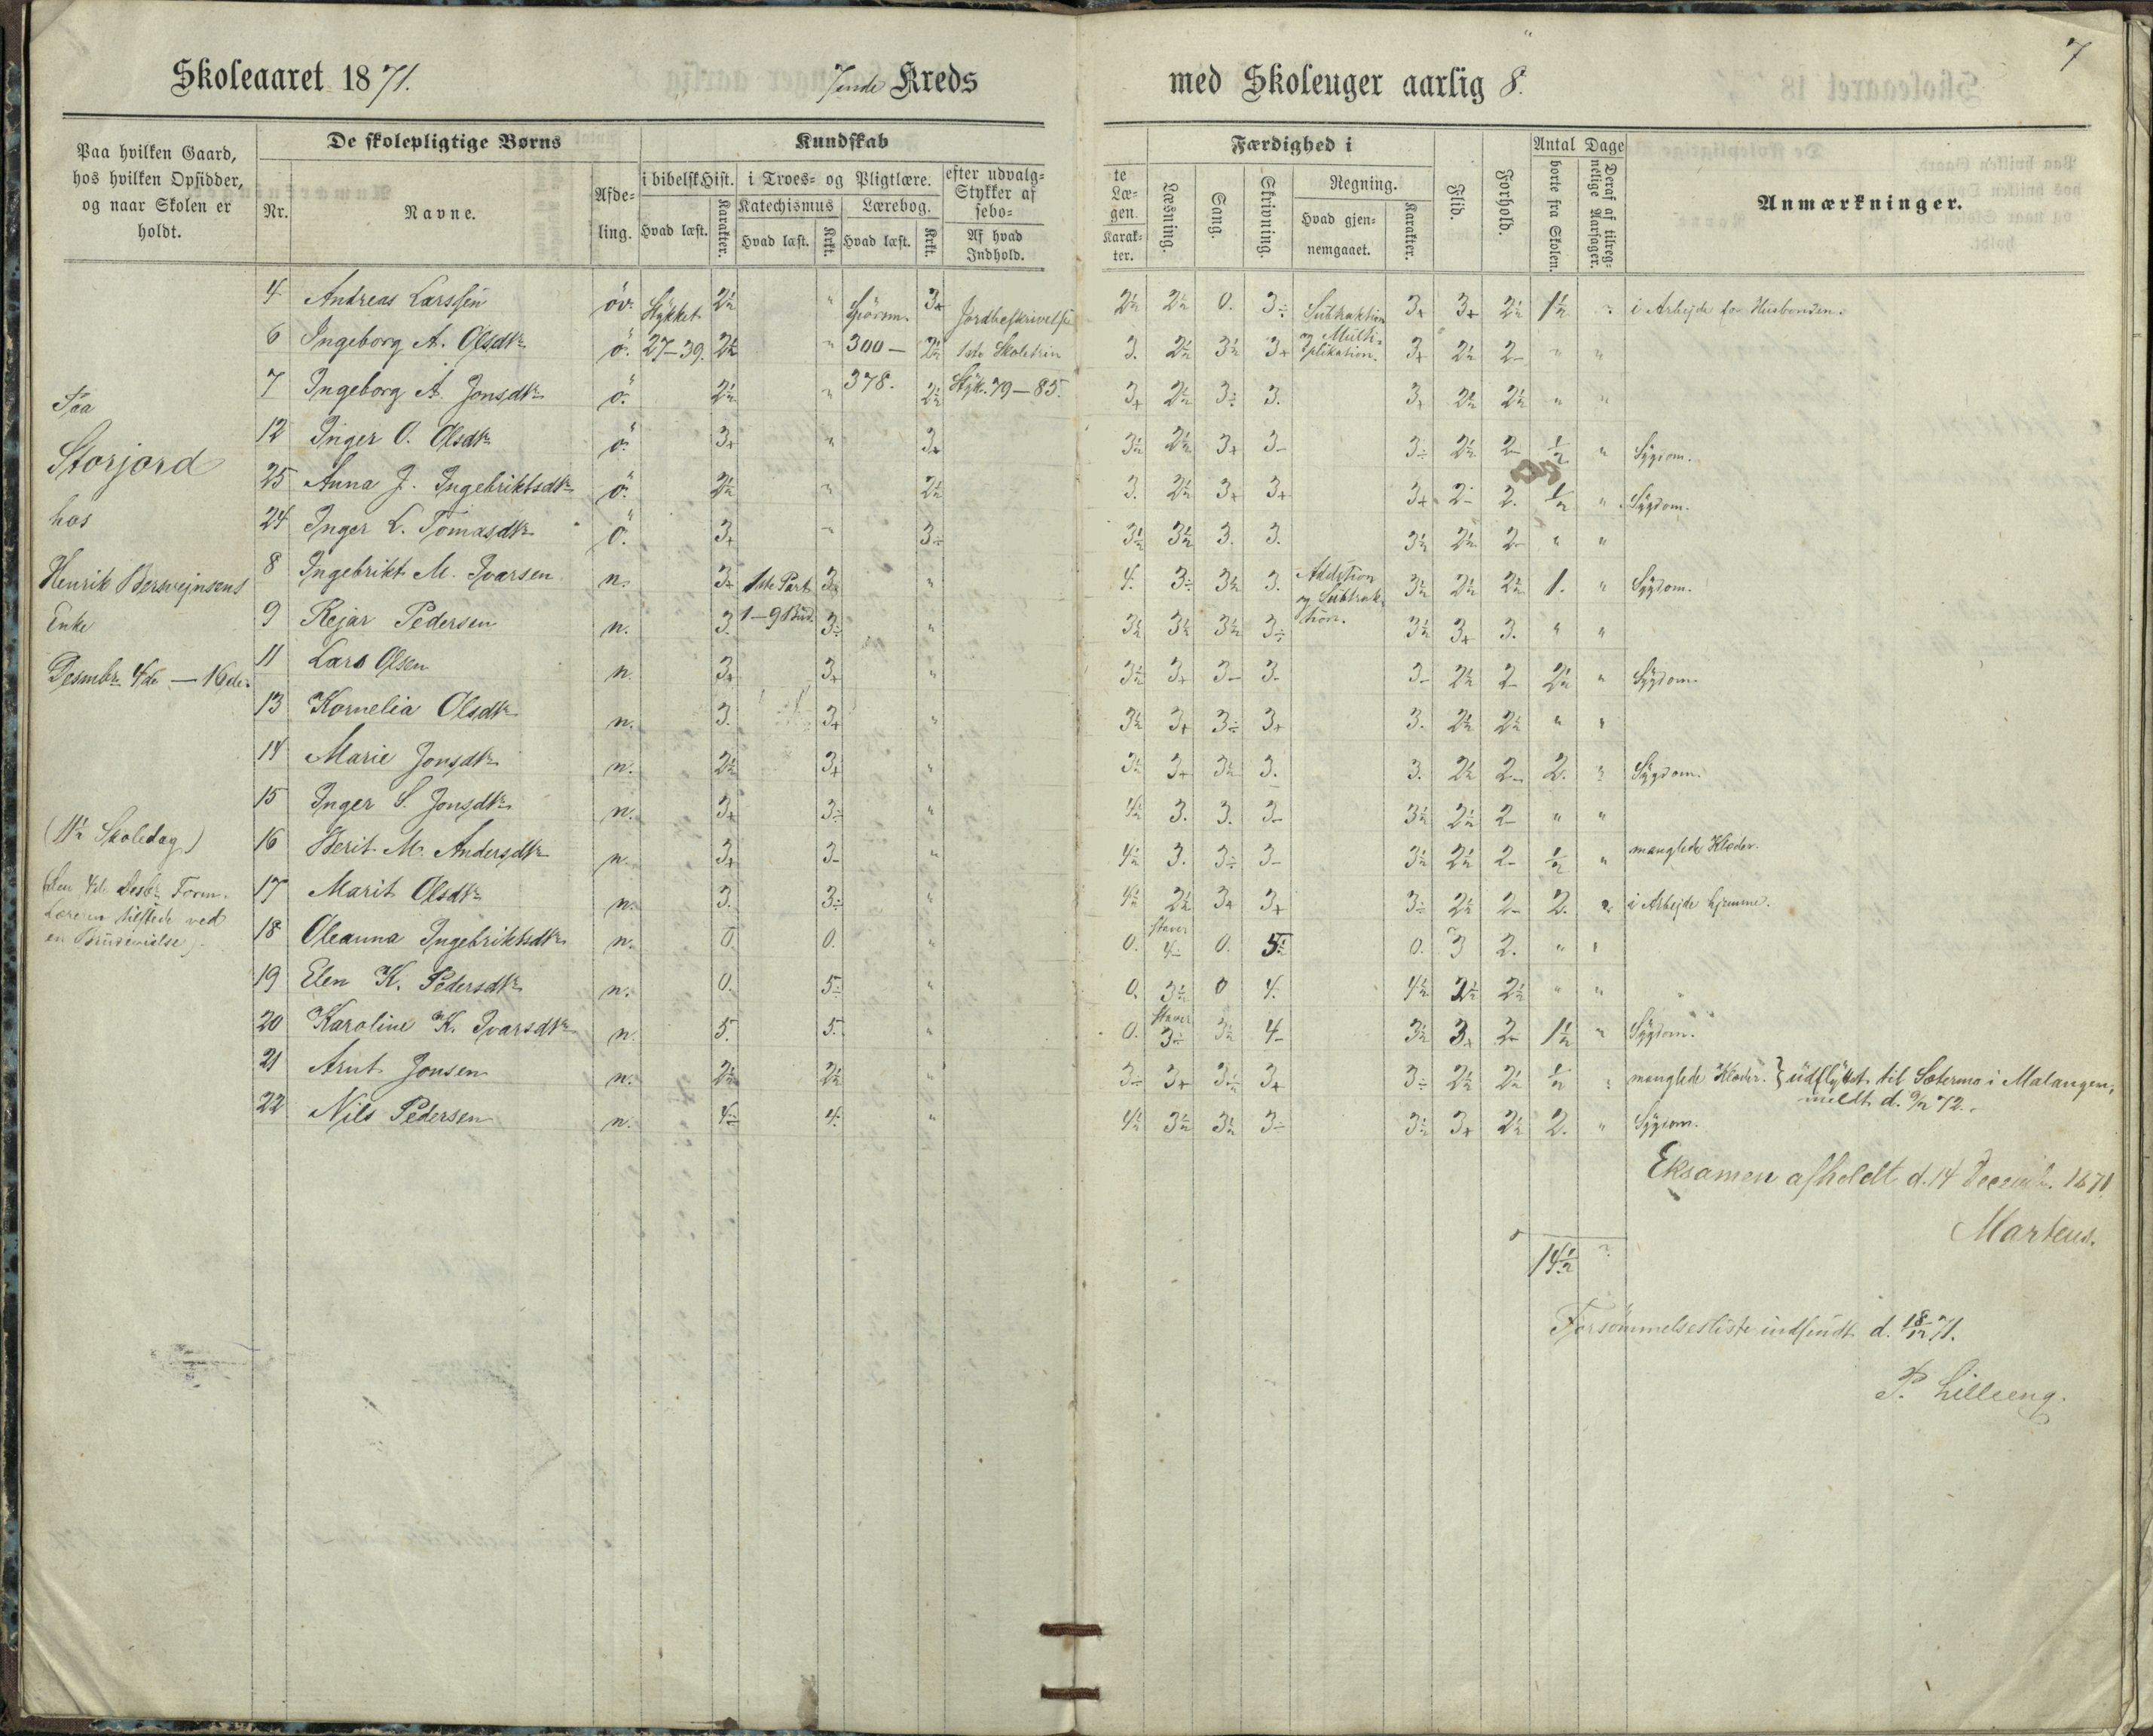 7
Skoleaaret 1871. 7ende Kreds med Skoleuger aarlig 8.
Paa hvilken Gaard, hos hvilken Opsidder, og naar Skolen er holdt.
De skolepligtige Børns
Nr. Navne. Afdeling.
Kundskab
i bibelsk Hist. Hvad læst. Karakter.
i Troes- og Pligtlære. Katechismus Hvad læst. Krkt. Lærebog. Hvad læst. Krkt.
efter udvalg- Stykker af Læsebo- Af hvad Indhold.
te Læ- gen. Karakter.
Færdighed i
Læsning. Sang. Skrivning. Regning. Hvad gjennemgaaet. Karakter.
Flid. Forhold.
Antal Dage borte fra Skolen. Deraf af tilregnelige Aarsager.
Anmærkninger.
Paa
Storjord
hos
Henrik Berntejnsens
Enke
Desmbr. 4de — 16de.
(11½ Skoledag)
(Den 4de Desbr. Form.
Læreren tilstede ved
en Brudevielse).
4 Andreas Larssen öv. Stykket 2½ " Spörsm. 3+ Jordbeskrivelse 2½ 2½ 0. 3÷ Subtraktion 3+ 3+ 2½ 1½ " i Arbejde for Husbonden.
6 Ingeborg A. Olsdtr ö. 27–39. 2½ " 300– 2½ 1ste Skoletrin 3. 2½ 3½ 3+ og Multiplikation. 3+ 2½ 2– " "
7 Ingeborg A. Jonsdtr ö. 2½ " 378. 2½ Styk. 79–85. 3+ 2½ 3÷ 3. 3+ 2½ 2½ " "
12 Inger O. Olsdtr ö. 3+ " 3+ 3½ 2½ 3+ 3– 3÷ 2½ 2– ½ " Sygdom.
25 Anna J. Ingebriktsdtr ö. 2½ " 2½ 3. 2½ 3+ 3+ 3+ 2– 2. ½ " Sygdom.
24 Inger L. Tomasdtr ö. 3+ " 3÷ 3½ 3½ 3. 3. 3½ 2½ 2– " "
8 Ingebrikt M. Ivarsen n. 3+ 1ste Part 3½ " 4. 3÷ 3½ 3. Addition og Subtraktion. 3½ 2½ 2½ 1. " Sygdom.
9 Rejar Pedersen n. 3. 1–9 Bud. 3÷ " 3½ 3½ 3½ 3÷ 3½ 3+ 3. " "
11 Lars Olsen n. 3+ 3+ " 3½ 3+ 3– 3– 3– 2½ 2– 2½ " Sygdom.
13 Kornelia Olsdtr n. 3. 3+ " 3½ 3+ 3÷ 3+ 3. 2½ 2½ " "
14 Marie Jonsdtr n. 2½ 3+ " 3½ 3+ 3½ 3. 3. 2½ 2– 2. " Sygdom.
15 Inger S. Jonsdtr n. 3+ 3÷ " 4½ 3. 3. 3– 3½ 2½ 2– " "
16 Berit M. Andersdtr n. 3+ 3– " 4½ 3. 3÷ 3– 3½ 2½ 2– ½ " manglede Klæder.
17 Marit Olsdtr n. 3. 3÷ " 4½ 2½ 3+ 3+ 3÷ 2½ 2– 2. 2. i Arbejde hjemme.
18 Oleanna Ingebriktsdtr n. 0. 0. " 0. staver 4– 0. 5÷ 0. 3 2. " "
19 Elen K. Pedersdtr n. 0. 5÷ " 0. 3½ 0 4. 4½ 2½ 2½ " "
20 Karoline K. Ivarsdtr n. 5. 5. " 0. staver 3÷ 3½ 4– 3½ 3+ 2– 1½ " Sygdom.
21 Arnt Jonsen n. 2½ 2½ " 3÷ 3+ 3½ 3+ 3÷ 2½ 2½ ½ " manglede Klæder. } udflyttet til Sætermo i Malangen, meldt d. 9/2 72.
22 Nils Pedersen n. 4÷ 4. " 4½ 3½ 3½ 3÷ 3½ 3+ 2½ 2. " Sygdom.
Eksamen afholdt d. 14 Decemb. 1871
Martens.
14½ 2.
Forsömmelsesliste indsendt d. 18/12 71.
P. Lilleeng.